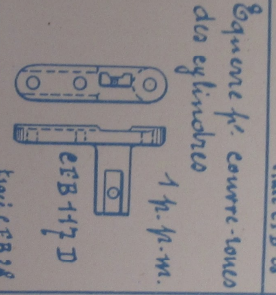 Equerre pr. couvre-roues
des cylindres
1 p.p.m.
CFB 117 D